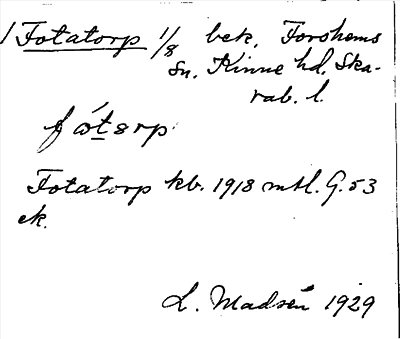 Fotatorp 1/8 bek. Forshems
sn. Kinne hd. Ska-
rab. l.
fó̤tsrp
Fotatorp kb. 1918 mtl. G. 53
ek.
L. Madsén 1929